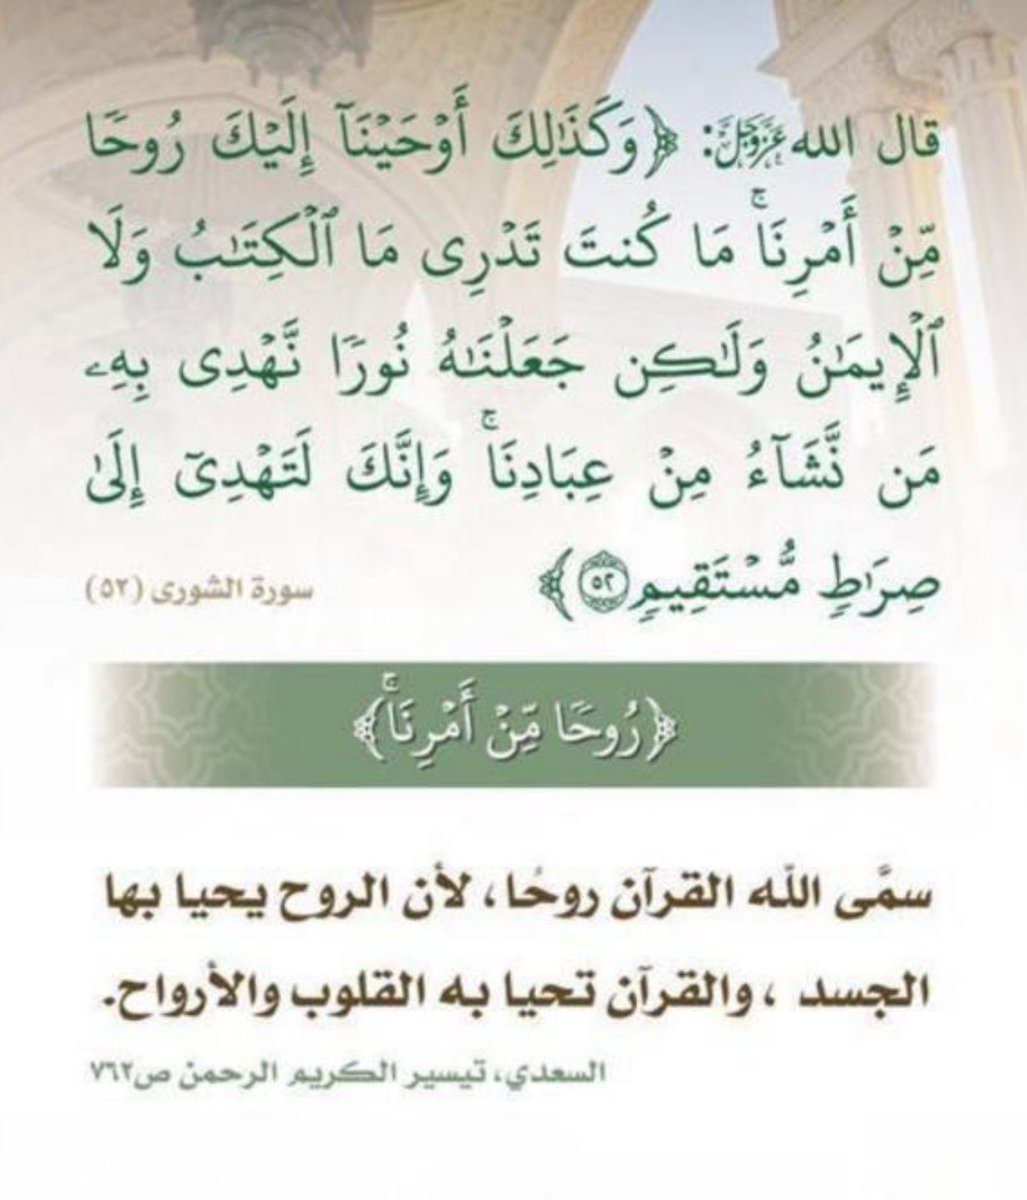 قال الله عَزَّوَجَلَّ: ﴿وَكَذَٰلِكَ أَوۡحَيۡنَآ إِلَيۡكَ رُوحٗا
مِّنۡ أَمۡرِنَاۚ مَا كُنتَ تَدۡرِى مَا ٱلۡكِتَٰبُ وَلَا
ٱلۡإِيمَٰنُ وَلَٰكِن جَعَلۡنَٰهُ نُورٗا نَّهۡدِى بِهِۦ
مَن نَّشَآءُ مِنۡ عِبَادِنَاۚ وَإِنَّكَ لَتَهۡدِىٓ إِلَىٰ
صِرَٰطٖ مُّسۡتَقِيمٖ ٥٢﴾ سورة الشورى (٥٢)
﴿رُوحٗا مِّنۡ أَمۡرِنَاۚ﴾
سمَّى اللّه القرآن روحًا، لأن الروح يحيا بها
الجسد ، والقرآن تحيا به القلوب والأرواح.
السعدي، تيسير الكريم الرحمن ص٧٦٢